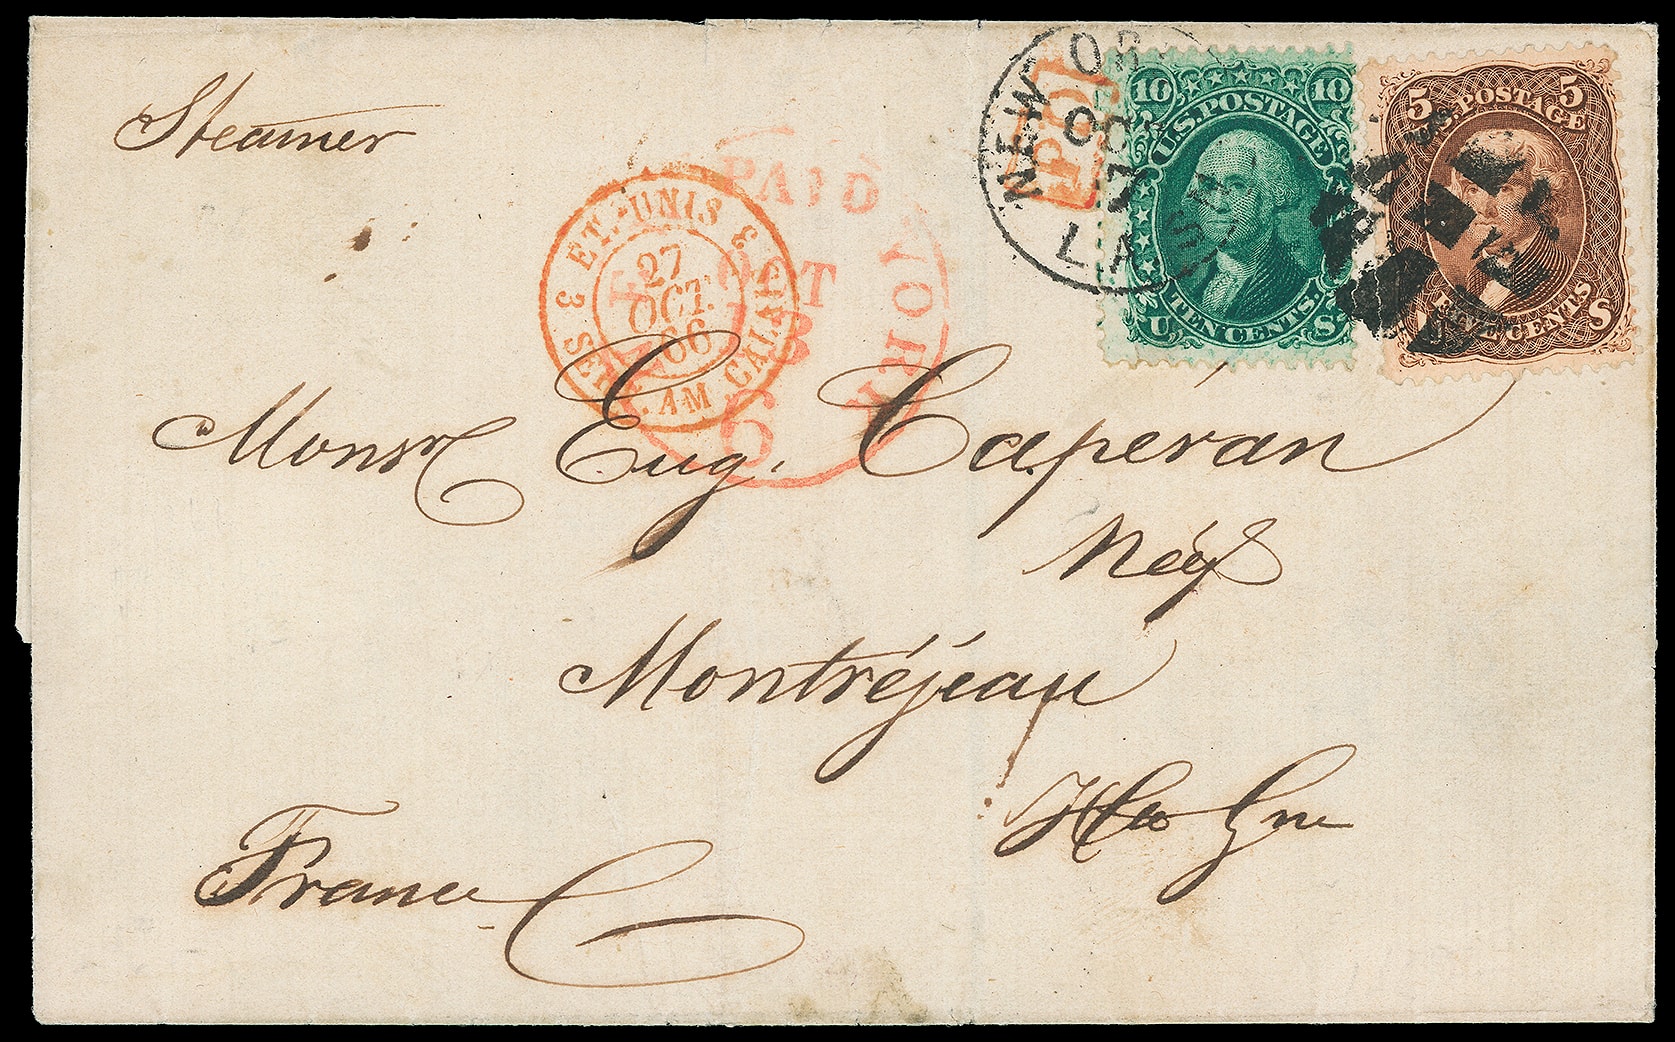 Steamer
NEW OR
OC
17
LA
PD
10 10
U.S. POSTAGE
TEN CENTS.
U S
5 5
U.S. POSTAGE
FIVE CENTS
U S
PAID
NEW YORK
OCT
13
6
ETS. UNIS
3 3
27
OCT.
66
AM. CALAIS
Monsr Eug. Capéran
Négt
Montréjeau
Hte Gne
France